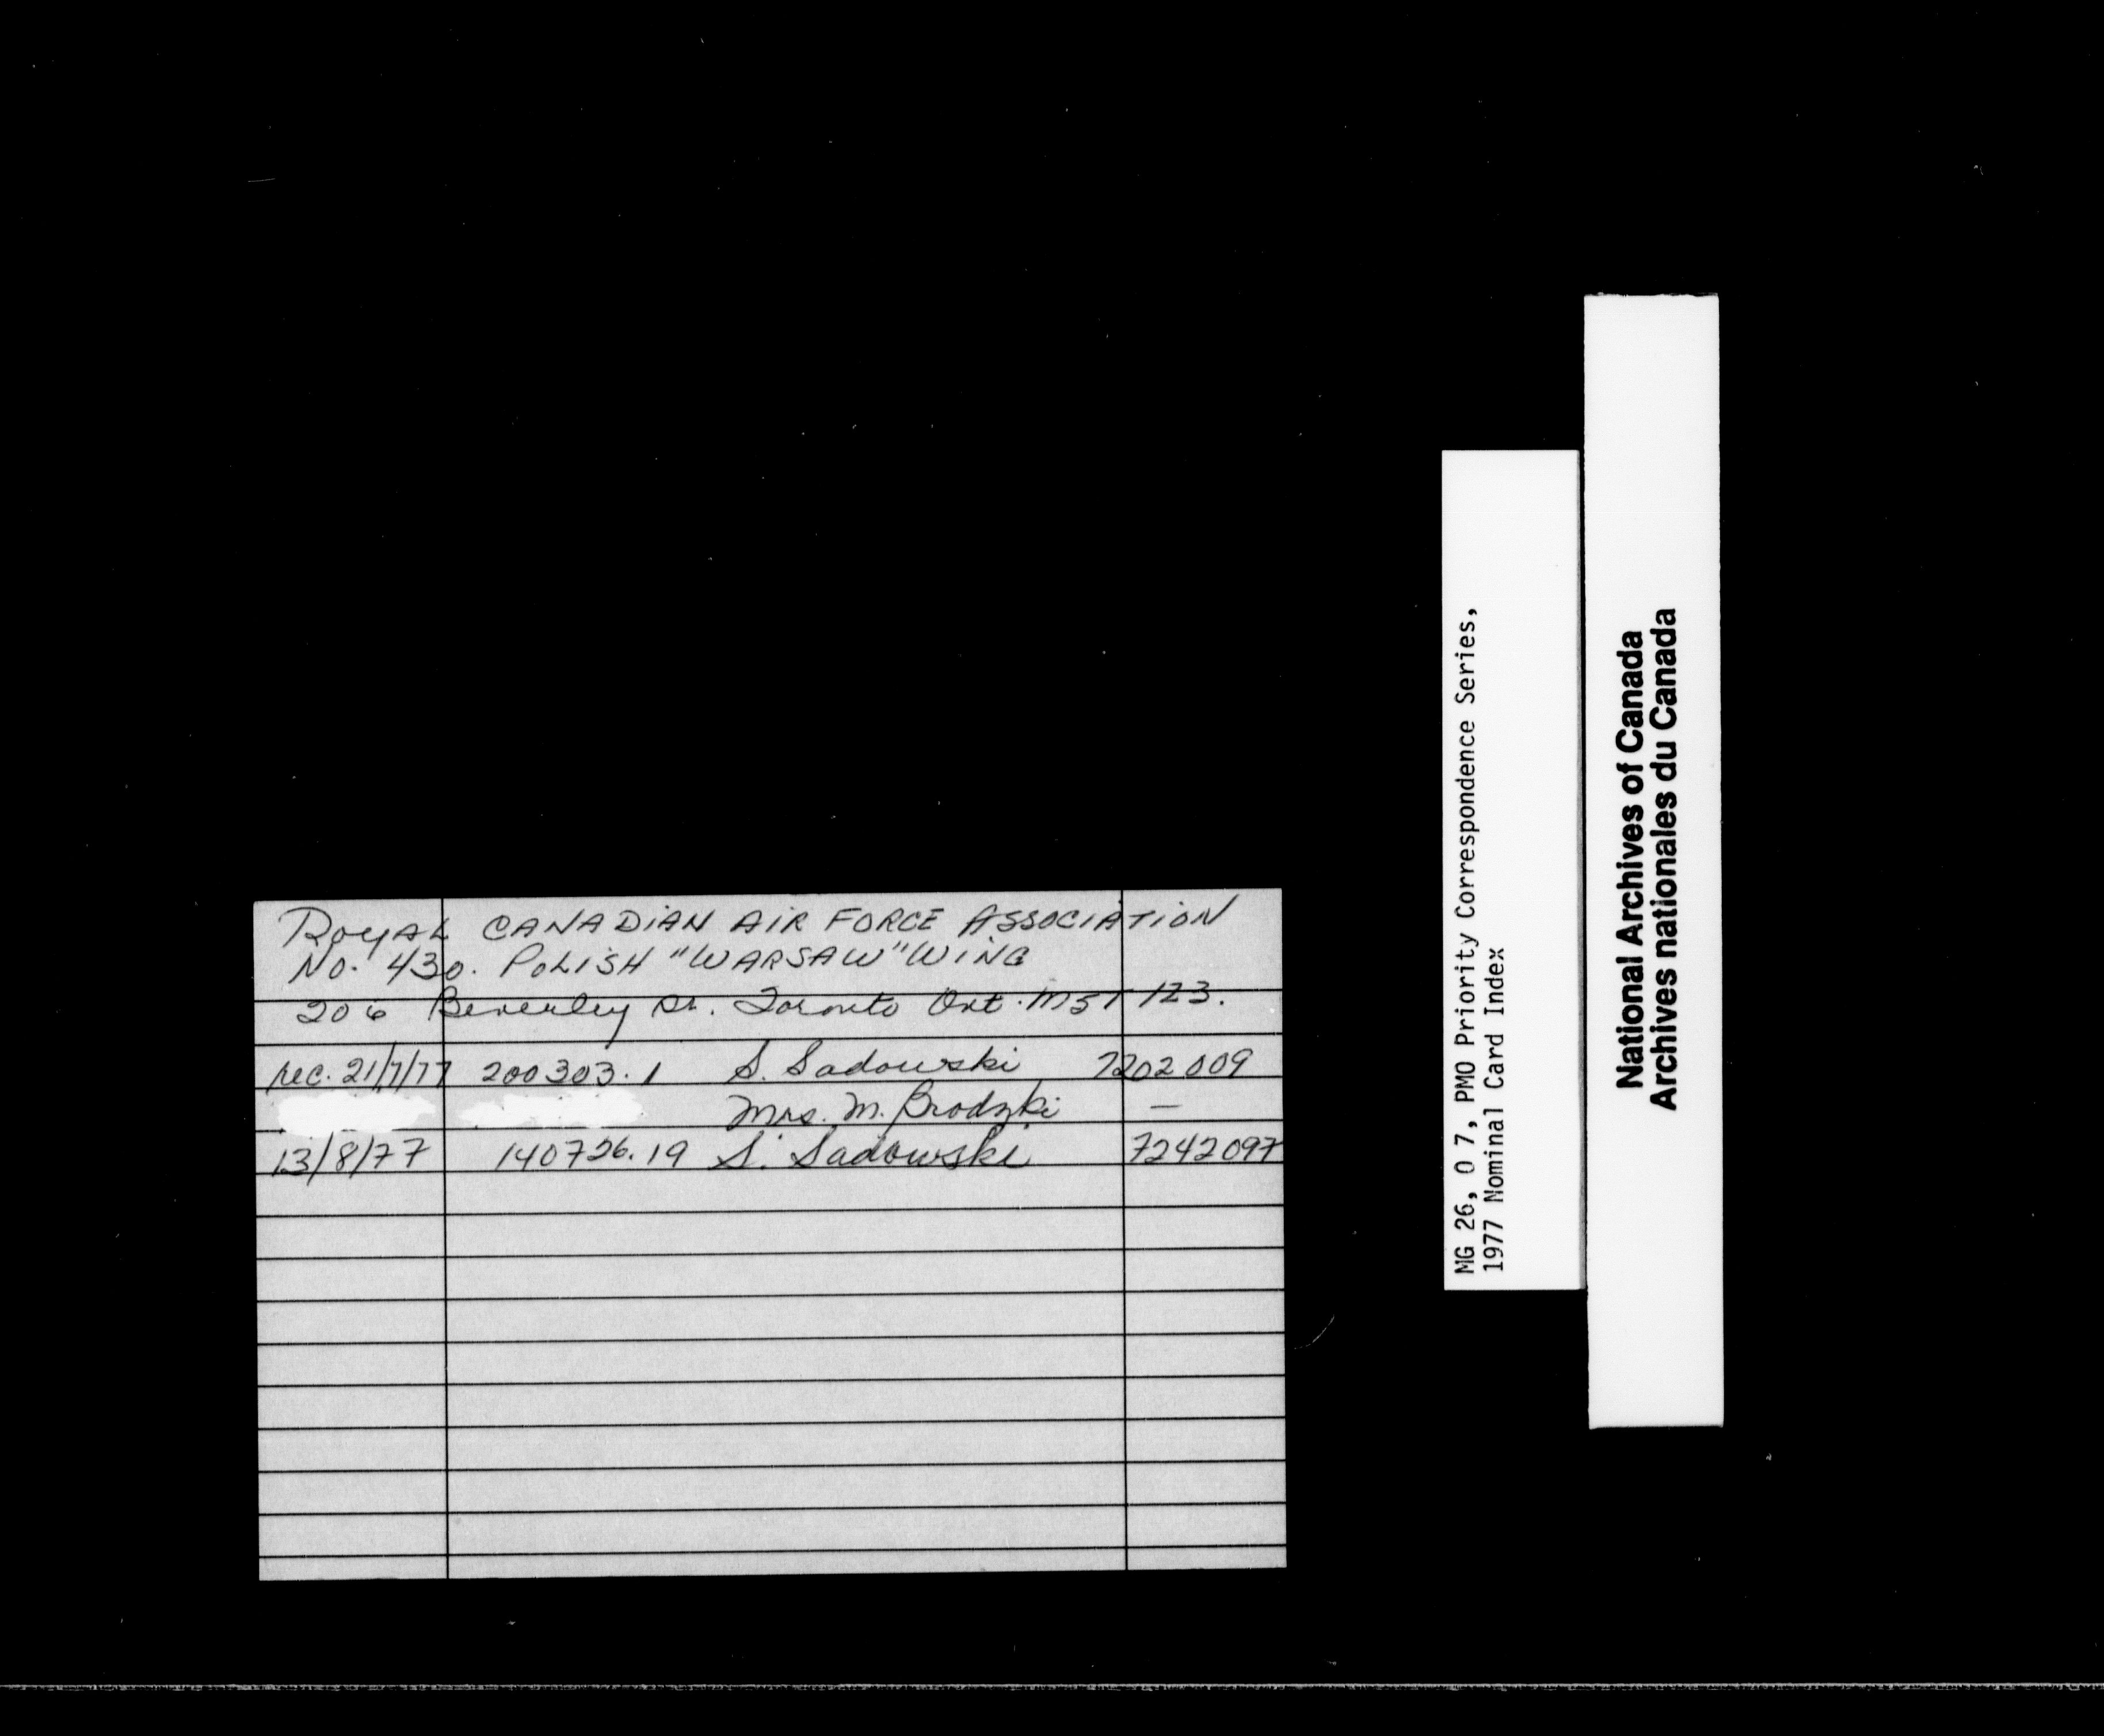 ROYAL CANADIAN AIR FORCE ASSOCIATION
NO. 430. POLISH "WARSAW" WING
206 Beverley St. Toronto Ont. M5T 1Z3.
rec. 21/7/77 200303.1 S. Sadowski 7202009
Mrs. M. Brodzki —
13/8/77 140726.19 S. Sadowski 7242097
MG 26, O 7, PMO Priority Correspondence Series,
1977 Nominal Card Index
National Archives of Canada
Archives nationales du Canada